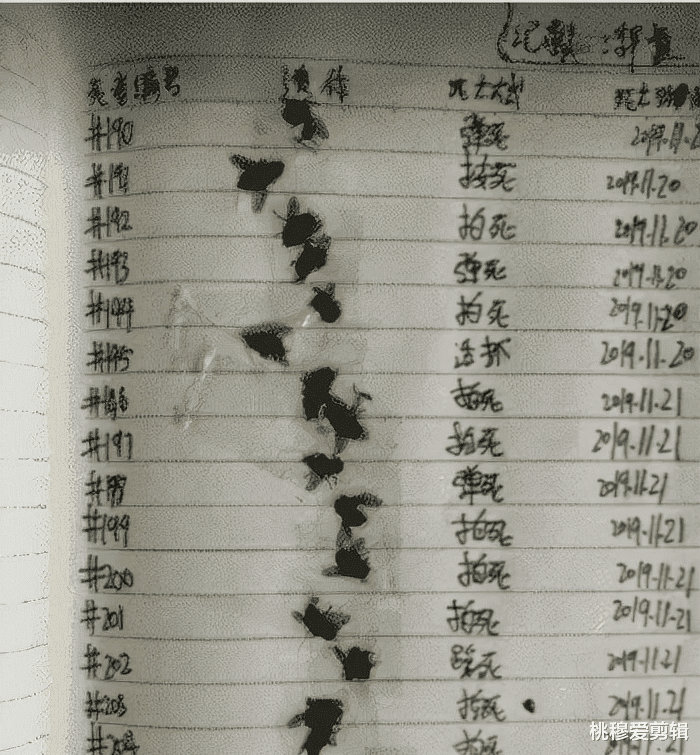 #190 弹死
#191 拍死 2019.11.20
#192 拍死 2019.11.20
#193 弹死 2019.11.20
#194 拍死 2019.11.20
#195 活抓 2019.11.20
#196 拍死 2019.11.21
#197 拍死 2019.11.21
#198 弹死 2019.11.21
#199 拍死 2019.11.21
#200 拍死 2019.11.21
#201 拍死 2019.11.21
#202 死 2019.11.21
#203 拍死 2019.11.21
#204 拍死
桃穆爱剪辑